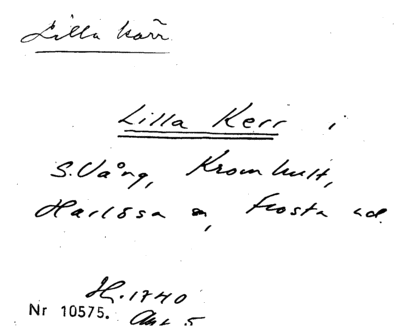 Lilla Kärr
Lilla Kerr i
S. Vång, Kromhult,
Harlösa sn, Frosta hd.
H. 1740
Nr 10575. Akt 5